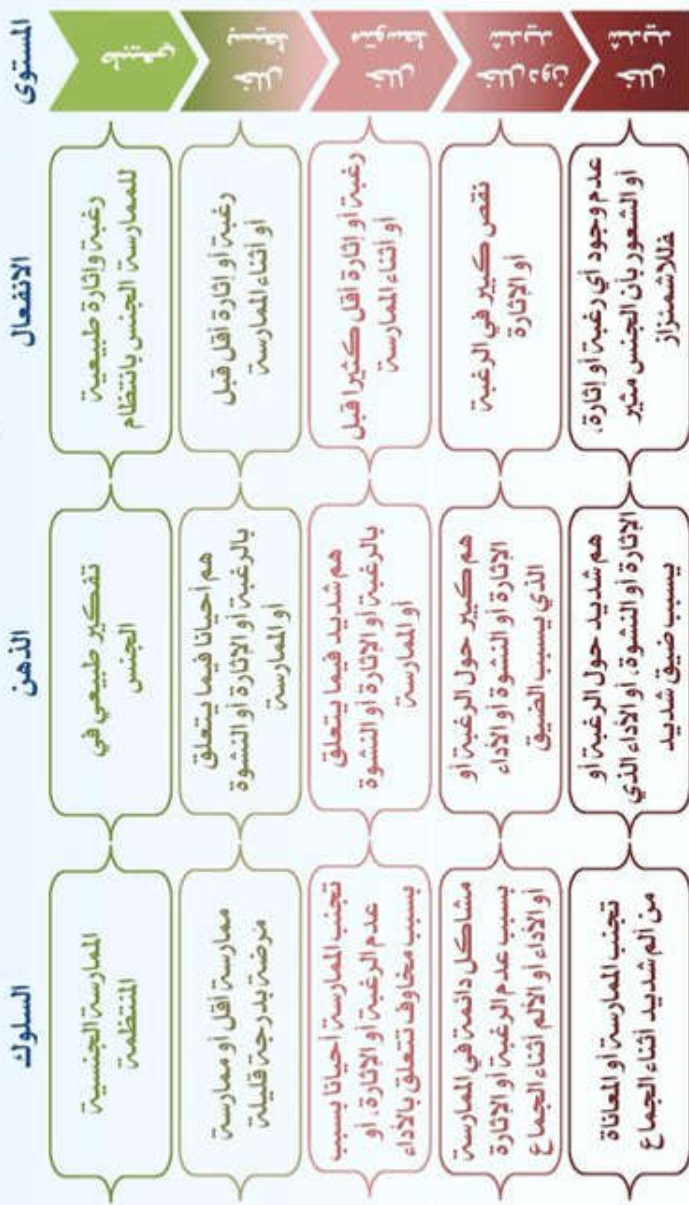 المستوى
الانفعال
الذهن
السلوك
طبيعي
رغبة وإثارة طبيعية
للممارسة الجنس بانتظام
تفكير طبيعي في
الجنس
الممارسة الجنسية
المنتظمة
خلل
بسيط
رغبة أو إثارة أقل قبل
أو أثناء الممارسة
هم أحيانا فيما يتعلق
بالرغبة أو الإثارة أو النشوة
أو الممارسة
ممارسة أقل أو ممارسة
مرضة بدرجة قليلة
خلل
متوسط
رغبة أو إثارة أقل كثيرا قبل
أو أثناء الممارسة
هم شديد فيما يتعلق
بالرغبة أو الإثارة أو النشوة
أو الممارسة
تجنب الممارسة أحيانا بسبب
عدم الرغبة أو الإثارة، أو
بسبب مخاوف تتعلق بالأداء
خلل دون
شديد
نقص كبير في الرغبة
أو الإثارة
هم كبير حول الرغبة أو
الإثارة أو النشوة أو الأداء
الذي يسبب الضيق
مشاكل دائمة في الممارسة
بسبب عدم الرغبة أو الإثارة
أو الأداء أو الألم أثناء الجماع
خلل
شديد
عدم وجود أي رغبة أو إثارة،
أو الشعور بأن الجنس مثير
خللاشمنزاز
هم شديد حول الرغبة أو
الإثارة أو النشوة، أو الأداء الذي
يسبب ضيق شديد
تجنب الممارسة أو المعاناة
من ألم شديد أثناء الجماع